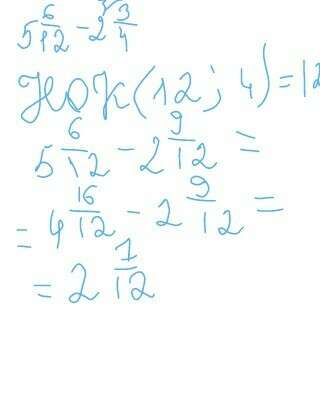 5 6/12 - 2 3/4
НОК(12; 4) = 12
5 6/12 - 2 9/12 =
= 4 16/12 - 2 9/12 =
= 2 1/12